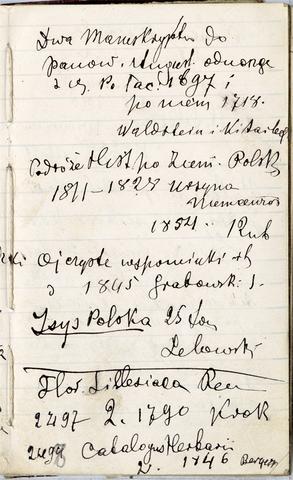 Dwa Manuskrypta do
panow. August. odnosze
z r. P. Tac. 1697 i
po niem 1718.
Waldstein i Kitaibel
Podróże Hist po Ziem. Polsk
1811—1828 Ursyna
Niemcewic
1854. Rub
Ojczyste wspominki
z 1845 Grabowski
Izys Polska 25
Lebowski
Flor. Sillesiaca
2497 2. 1790 Krok
2499 Catalogus Herbarii
1746 Bergen